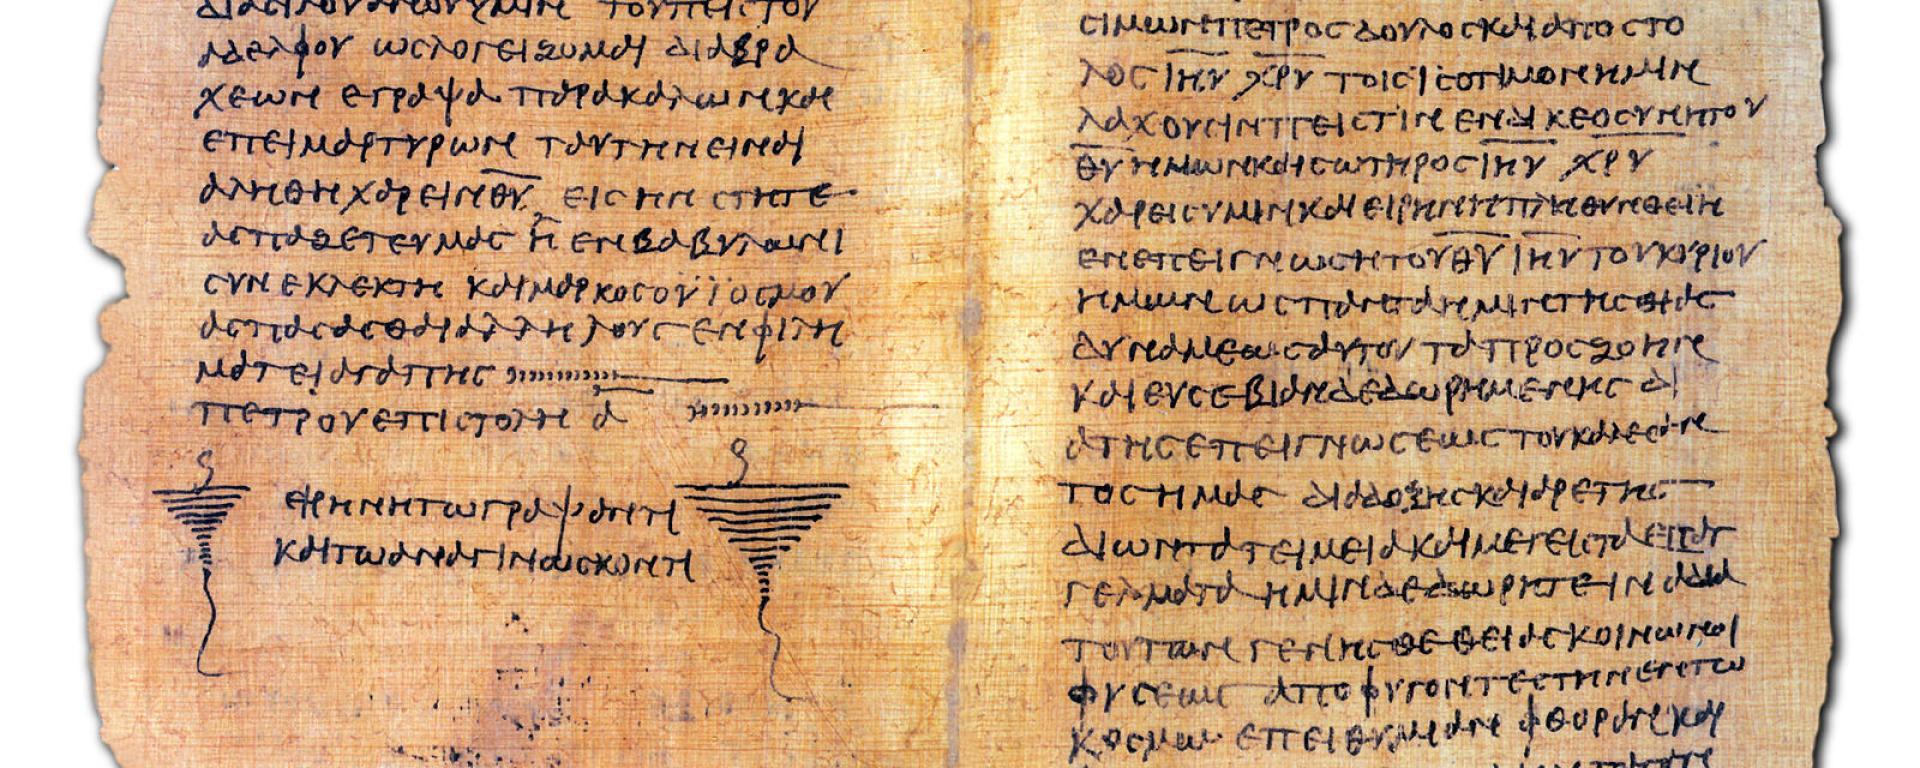 διασιλουανουυμιν τουπειστου
αδελφου ωςλογειζομαι διαβρα
χεων εγραψα παρακαλωνκαι
επειμαρτυρων ταυτηνειναι
αληθηχαρειν θ̅υ̅ ειςην στητε
ασπαζετευμας η εν βαβυλωνι
συνεκλεκτη καιμαρκοςουϊοςμου
ασπασασθαιαλληλους ενφιλη
ματειαγαπης
πετρουεπιστολη α̅
ειρηνητωγραψαντι
καιτωαναγινωσκοντι
σιμωνπετρος δουλοςκαιαποστο
λος ι̅η̅υ̅ χ̅ρ̅υ̅ τοιςϊσοτιμονημιν
λαχουσινπειστιν ενδικεοσυνητου
θ̅υ̅ ημωνκαισωτηρος ι̅η̅υ̅ χ̅ρ̅υ̅
χαρειςυμινκαιειρηνηπληθυνθειη
ενεπειγνωσητου θ̅υ̅ ι̅η̅υ̅ τουκυριου
ημων ωςπανταημιντηςθειας
δυναμεωςαυτου ταπροςζοην
καιευσεβιανδεδωρημενης δι
ατηςεπειγνωσεωςτουκαλεσαν
τοςημας διαδοξηςκαιαρετης
διωντατειμειακαιμεγεισταεπαγ
γελματα ημινδεδωρητε ιναδια
τουτων γενησθεθειαςκοινωνοι
φυσεως αποφυγοντεςτηνεντω
κοσμω επειθυμιαν φθορανκαι